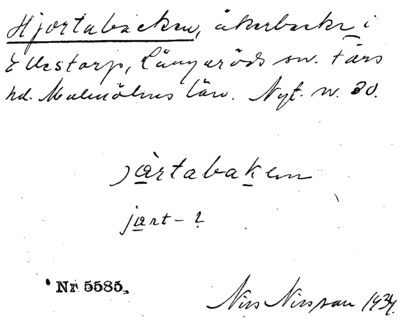 Hjortabacken, åkerbacke i
Ellestorp, Långaröds sn. Färs
hd. Malmöhus län. Nyt. n. 30.
jàrtabakem
jart- ?
Nr 5585.
Nils Nilsson 1934.